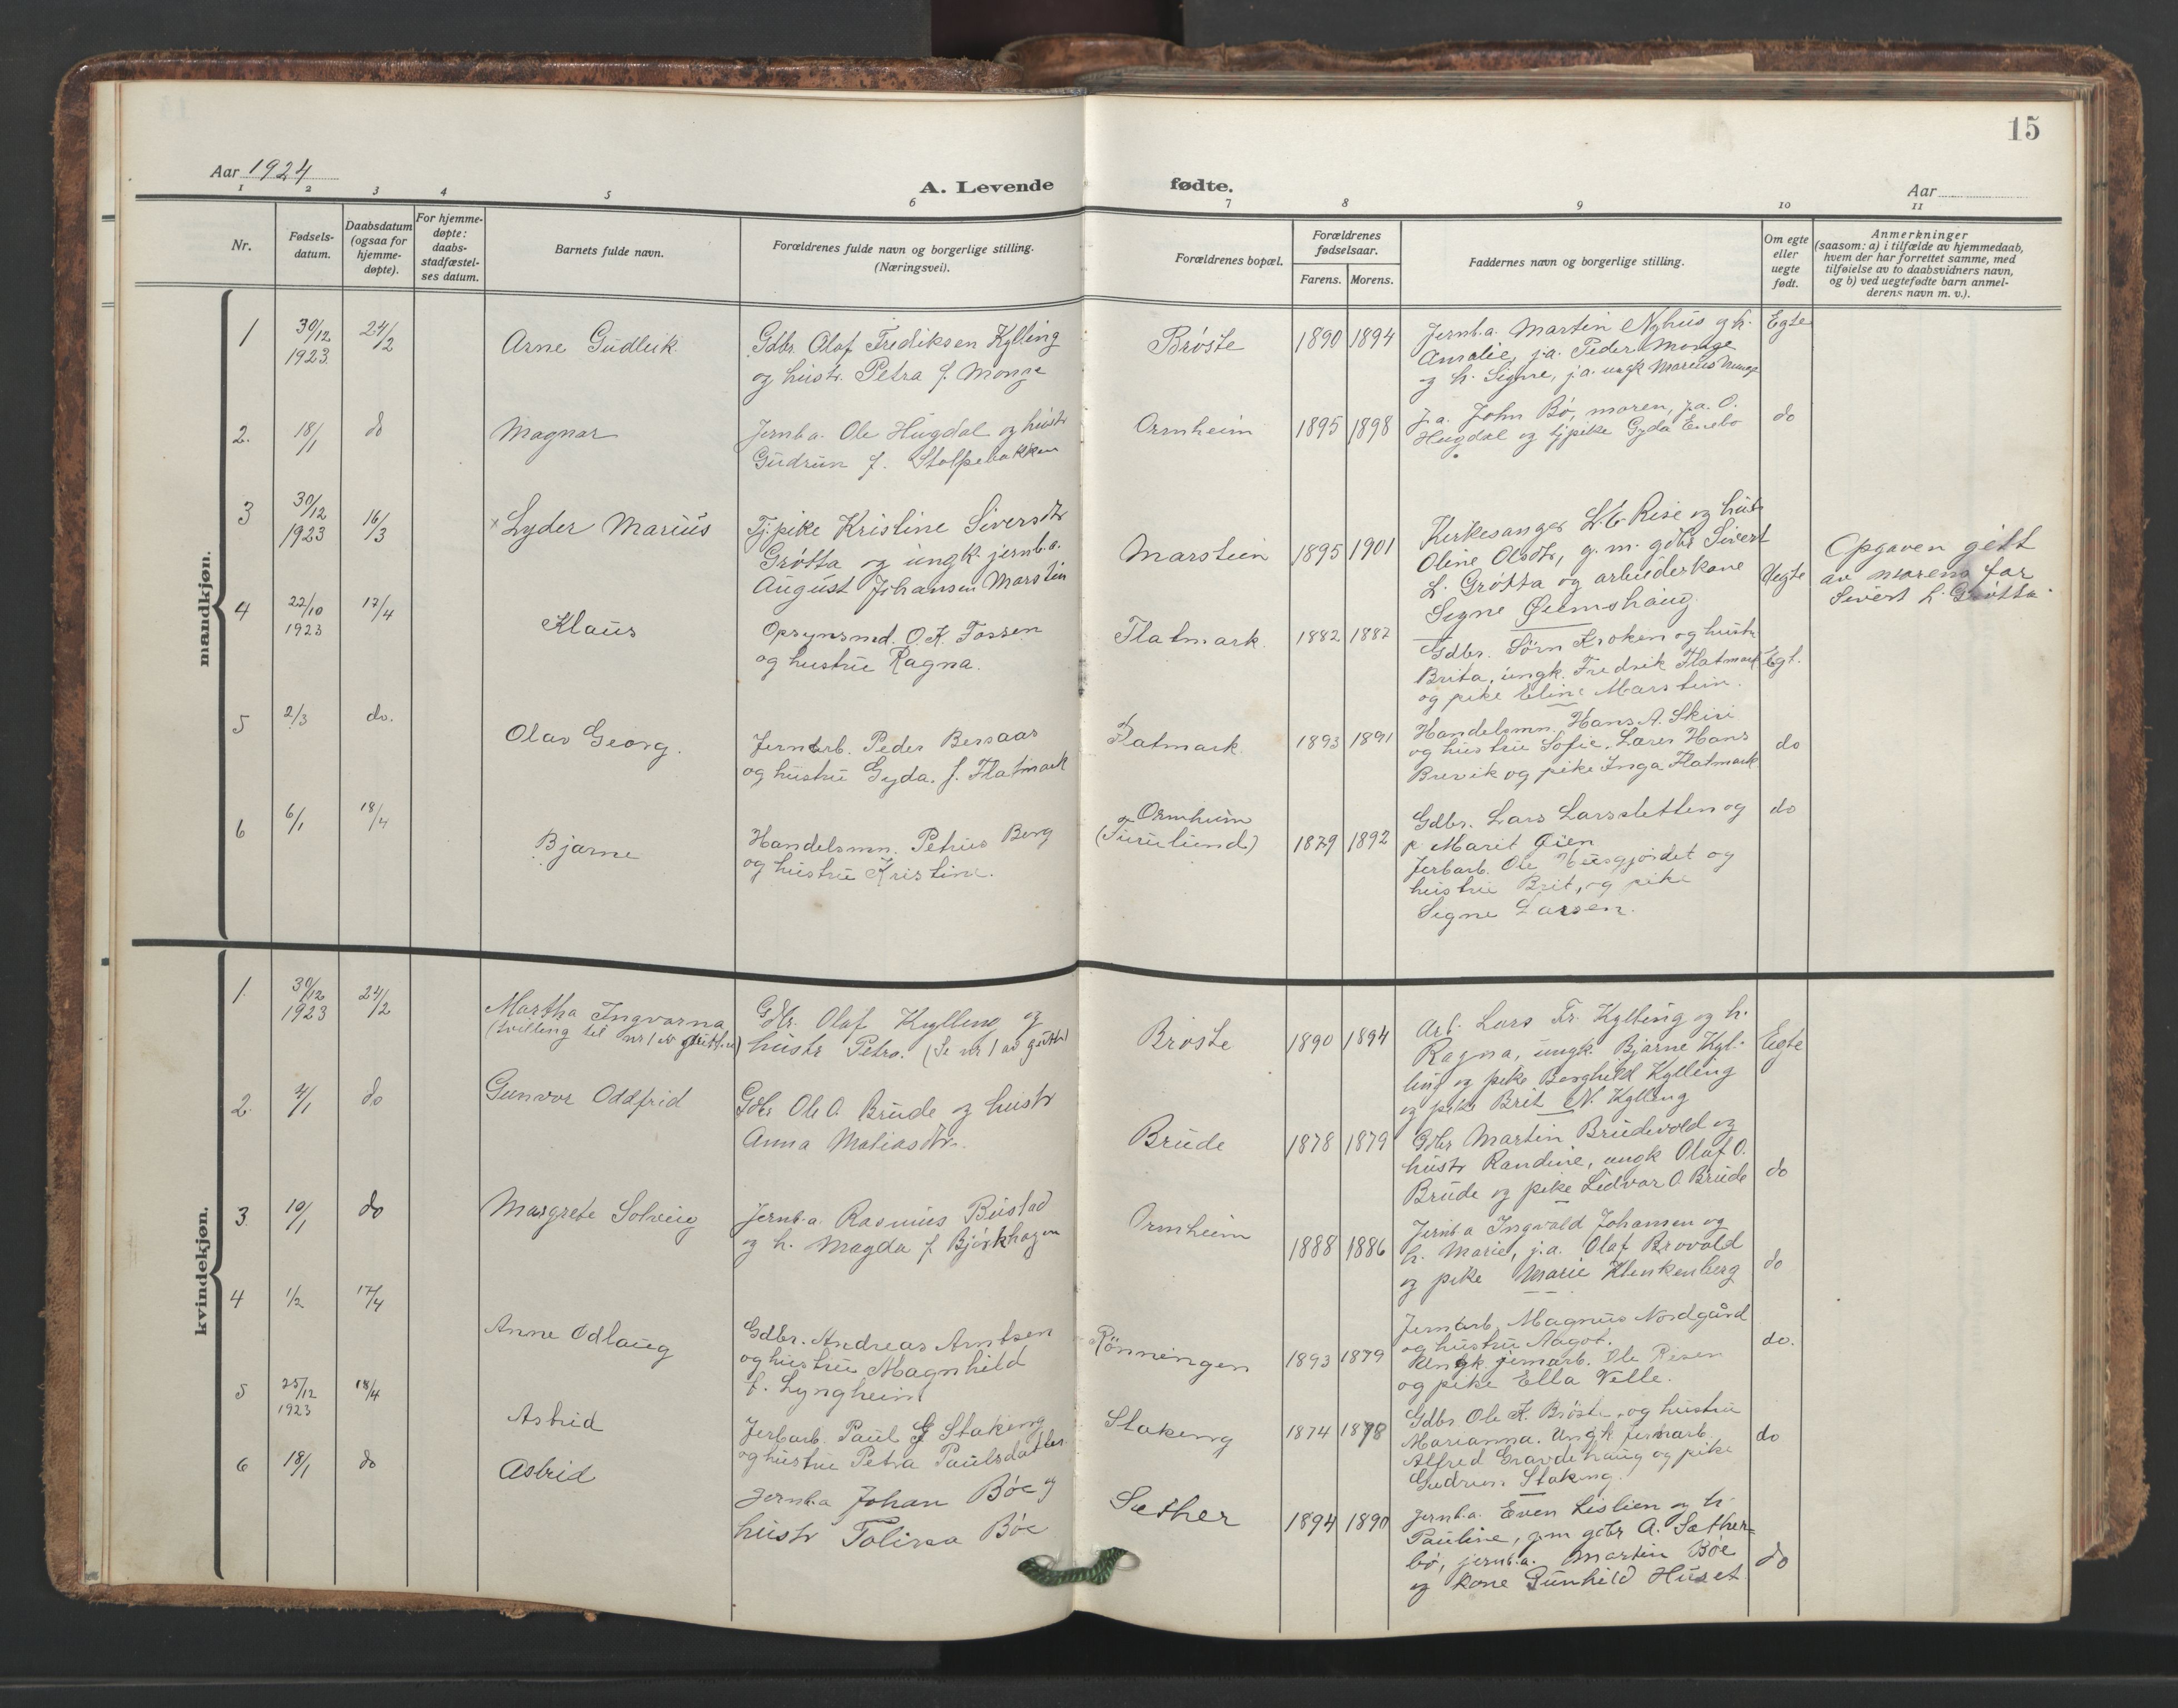 15
Aar 1924
A. Levende fødte.
Aar
1 2 3 4 5 6 7 8 9 10 11
Nr.
Fødsels-
datum.
Daabsdatum
(ogsaa for
hjemme-
døpte).
For hjemme-
døpte:
daabs-
stadfæstel-
ses datum.
Barnets fulde navn.
Forældrenes fulde navn og borgerlige stilling.
(Næringsvei).
Forældrenes bopæl.
Forældrenes
fødselsaar.
Farens. Morens.
Faddernes navn og borgerlige stilling.
Om egte
eller
uegte
født.
Anmerkninger
(saasom: a) i tilfælde av hjemmedaab,
hvem der har forrettet samme, med
tilføielse av to daabsvidners navn,
og b) ved uegtefødte barn anmel-
derens navn m. v.).
mandkjøn.
1
30/12
1923
24/2
Arne Gudleik
Gdbr. Olaf Frediksen Kylling
og hustr. Petra f. Monge
Brøste
1890 1894
Jernb.a. Martin Nyhus g h.
Amalie, j.a. Peder Monge
og h. Signe, j.a. ungk Marius Monge
Egte
2.
18/1
do
Magnar
Jernb.a. Ole Hugdal og hustr
Gudrun f. Stolpebakken
Ormheim
1895 1898
J.a. John Bø, moren, j.a. O.
Hugdal og tjpike Gyda Enebo
do
3
30/12
1923
16/3
x Lyder Marius
Tj.pike Kristine Siversdtr
Grøtta og ungk. jernb.a.
August Johansen Marstein
Marstein
1895 1901
Kirkesanger L. E. Rise og hustr
Oline Olsdtr, g.m. gdbr Sivert
L. Grøtta og arbeiderkone
Signe Øiemshaug
Uegte
Opgaven gitt
av morens far
Sivert L. Grøtta.
4
22/10
1923
17/4
Klaus
Opsynsmd. O. K. Fossen
og hustru Ragna.
Flatmark
1882 1882
Gdbr. Sørn Kroken og hustr
Brita, ungk. Fredrik Flatmark
og pike Eline Marstein.
Egt.
5
2/3
do.
Olav Georg.
Jernarb. Peder Bersaas
og hustru Gyda. f. Flatmark
Flatmark
1893 1891
Handelsmn. Hans A. Skiri
og hustru Sofie. Lærer Hans
Brevik og pike Inga Flatmark
do
6
6/1
18/4
Bjarne
Handelsmn. Petrus Berg
og hustru Kristine.
Ormheim
(Furulund)
1879 1892
Gdbr. Lars Larssletten og
p. Marit Øien
Jerbarb. Ole Husgjerdet og
hustru Brit, og pike
Signe Larsen.
do
kvindekjøn.
1.
30/12
1923
24/2
Martha Ingvarna
(tvilling til nr 1 av guttene)
Gdbr. Olaf Kylling og
hustr Petra. (Se nr 1 av gutter)
Brøste
1890 1894
Arb. Lars Fr. Kylling og h.
Ragna, ungk. Bjarne Kyl-
ling og pike Borghild Kylling
og pike Brit N. Kylling
Egte
2.
4/1
do
Gunvor Oddfrid
Gdbr Ole O. Brude og hustr
Anna Matiasdtr.
Brude
1878 1879
Gdbr Martin Brudevold og
hustr Randine, ungk Olaf O.
Brude og pike Lidvar O. Brude
do
3
10/1
do
Margrete Solveig
Jernb.a. Rasmus Bustad
og h. Magda f. Bjørkhagen
Ormheim
1888 1886
Jernb.a Ingvald Johansen og
h. Marie, j.a. Olaf Brovold
og pike Marie Klenkenberg
do
4
1/2
17/4
Anne Odlaug
Gdbr. Andreas Arntsen
og hustru Magnhild
f. Lyngheim
Rønningen
1893 1879
Jernarb. Magnus Nordgård
og hustru Aagot.
Ungk. jernarb. Ole Risen
og pike Ella Velle.
do.
5
25/12
1923
18/4
Astrid
Jerbarb. Paul G Stakeng
og hustru Petra Paulsdatter
Stakeng
1874 1878
Gdbr. Ole K. Brøste og hustru
Marianna. Ungk jernarb.
Alfred Gravdehaug og pike
Gudrun Stakeng.
do
6
18/1
do
Astrid
Jernb.a Johan Bøe og
hustr Tolina Bøe
Sæther
1894 1890
Jernb.a. Even Lislien og h.
Pauline, gm gdbr A. Sæther-
bø, jernb.a. Martin Bøe
og kone Gunhild Huset
do